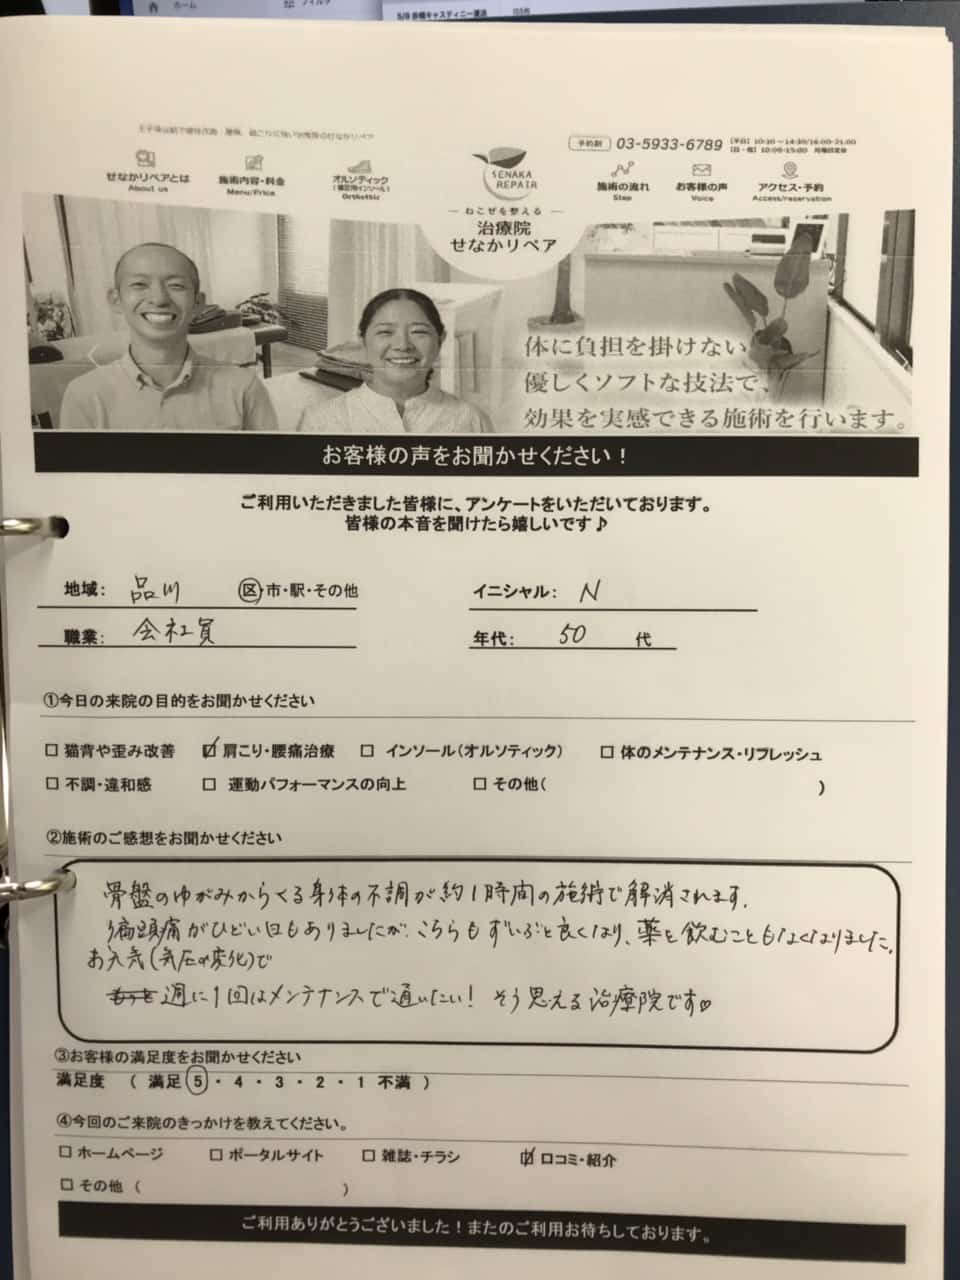 ホーム
フィルタ
王子神谷駅で腰椎改善・腰痛、肩こりに強い治療院のせなかリペア
予約制 03-5933-6789
【平日】10:30～14:30/16:00-21:00
【日・祝】10:00-15:00 月曜日定休
せなかリペアとは
About us
施術内容・料金
Menu/Price
オルソティック
(補正用インソール)
Orthothic
SENAKA
REPAIR
ねこぜを整える
治療院
せなかリペア
施術の流れ
Step
お客様の声
Voice
アクセス・予約
Access/reservation
体に負担を掛けない
優しくソフトな技法で、
効果を実感できる施術を行います。
お客様の声をお聞かせください！
ご利用いただきました皆様に、アンケートをいただいております。
皆様の本音を聞けたら嬉しいです♪
地域： 品川 区・市・駅・その他 イニシャル： N
職業： 会社員 年代： 50 代
①今日の来院の目的をお聞かせください
□ 猫背や歪み改善 ☑ 肩こり・腰痛治療 □ インソール（オルソティック） □ 体のメンテナンス・リフレッシュ
□ 不調・違和感 □ 運動パフォーマンスの向上 □ その他（ ）
②施術のご感想をお聞かせください
骨盤のゆがみからくる身体の不調が約1時間の施術で解消されます。
偏頭痛がひどい日もありましたが、こちらもずいぶと良くなり、薬を飲むこともなくなりました。
お天気(気圧の変化)で
週に1回はメンテナンスで通いたい！ そう思える治療院です♡
③お客様の満足度をお聞かせください
満足度 （ 満足 5・4・3・2・1 不満 ）
④今回のご来院のきっかけを教えてください。
□ ホームページ □ ポータルサイト □ 雑誌・チラシ ☑ 口コミ・紹介
□ その他 （ ）
ご利用ありがとうございました！またのご利用お待ちしております。